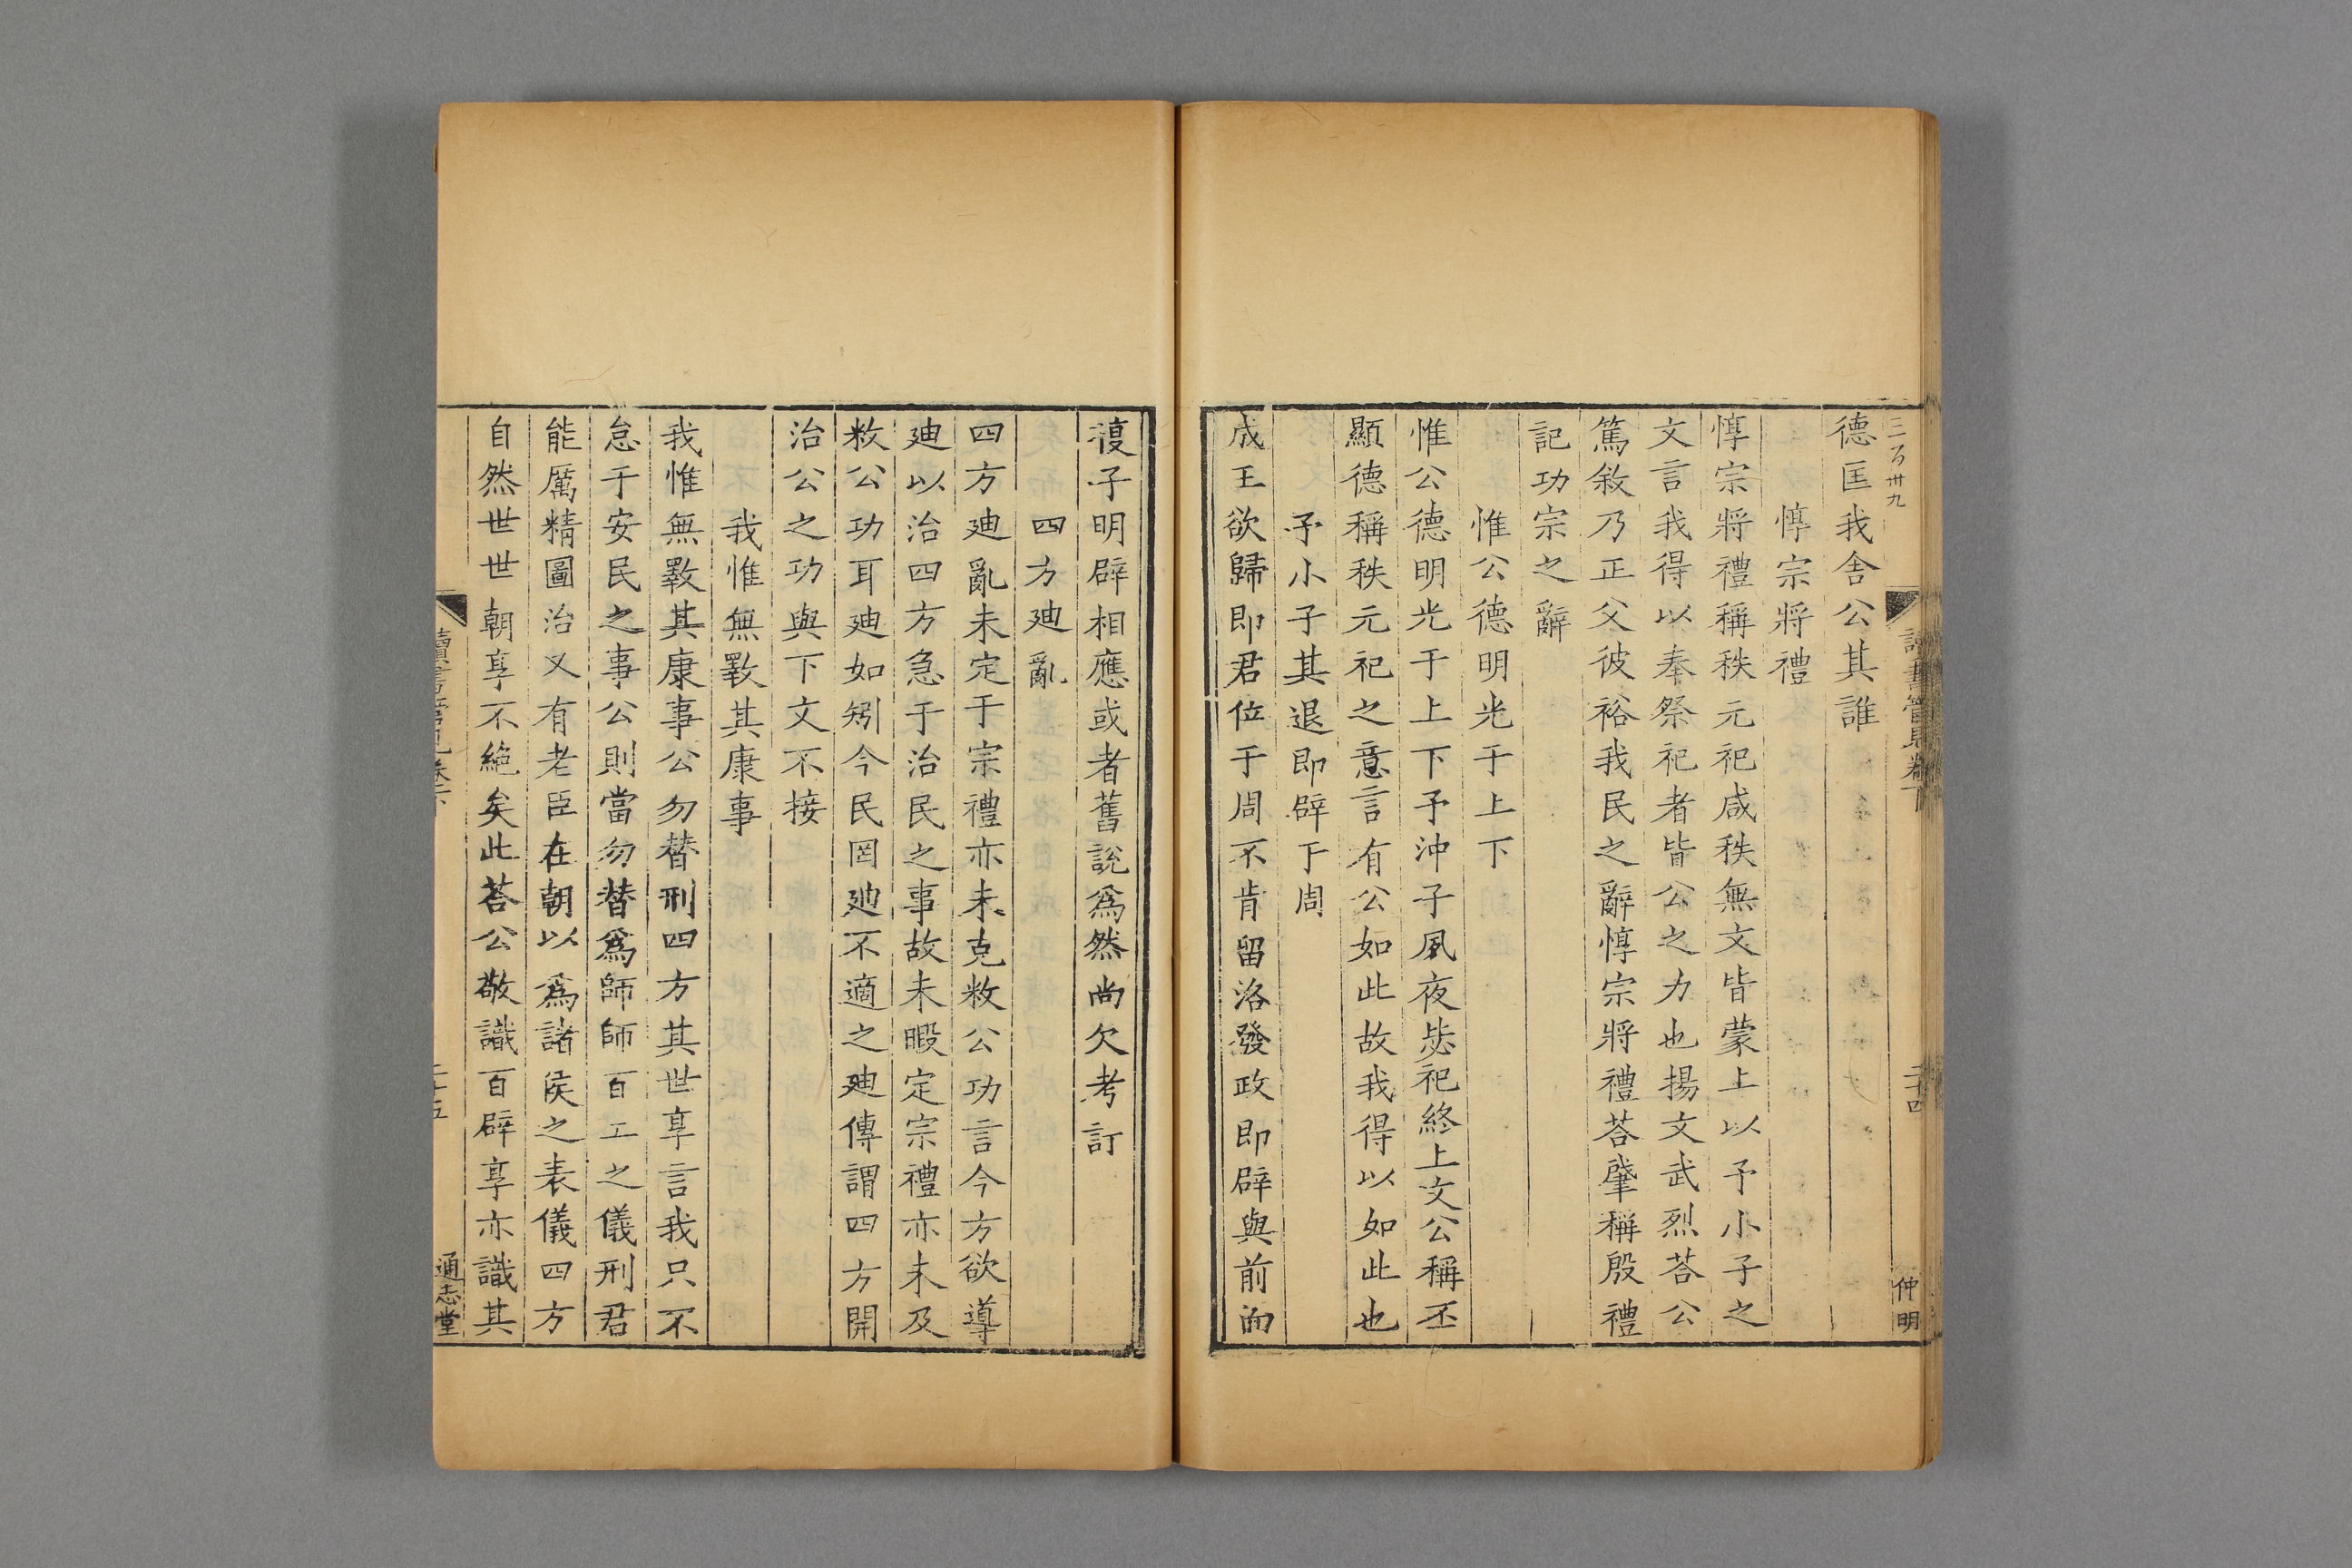 三百卅九
仲明
二十四
德匡我舍公其誰
惇宗將禮
惇宗將禮稱秩元祀咸秩無文皆蒙上以予小子之
文言我得以奉祭祀者皆公之力也揚文武烈荅公
篤敘乃正父彼裕我民之辭惇宗將禮荅肇稱殷禮
記功宗之辭
惟公德明光于上下
惟公德明光于上下予沖子夙夜毖祀終上文公稱丕
顯德稱秩元祀之意言有公如此故我得以如此也
予小子其退即辟于周
成王欲歸即君位于周不肯留洛發政即辟與前面
復子明辟相應或者舊說爲然尚欠考訂
四方廸亂
四方廸亂未定于宗禮亦未克敉公功言今方欲導
廸以治四方急于治民之事故未暇定宗禮亦未及
敉公功耳廸如矧今民罔廸不適之廸傳謂四方開
治公之功與下文不接
我惟無斁其康事
我惟無斁其康事公勿替刑四方其世享言我只不
怠于安民之事公則當勿替爲師師百工之儀刑君
能厲精圖治又有老臣在朝以爲諸侯之表儀四方
自然世世朝享不絕矣此荅公敬識百辟享亦識其
二十五
通志堂